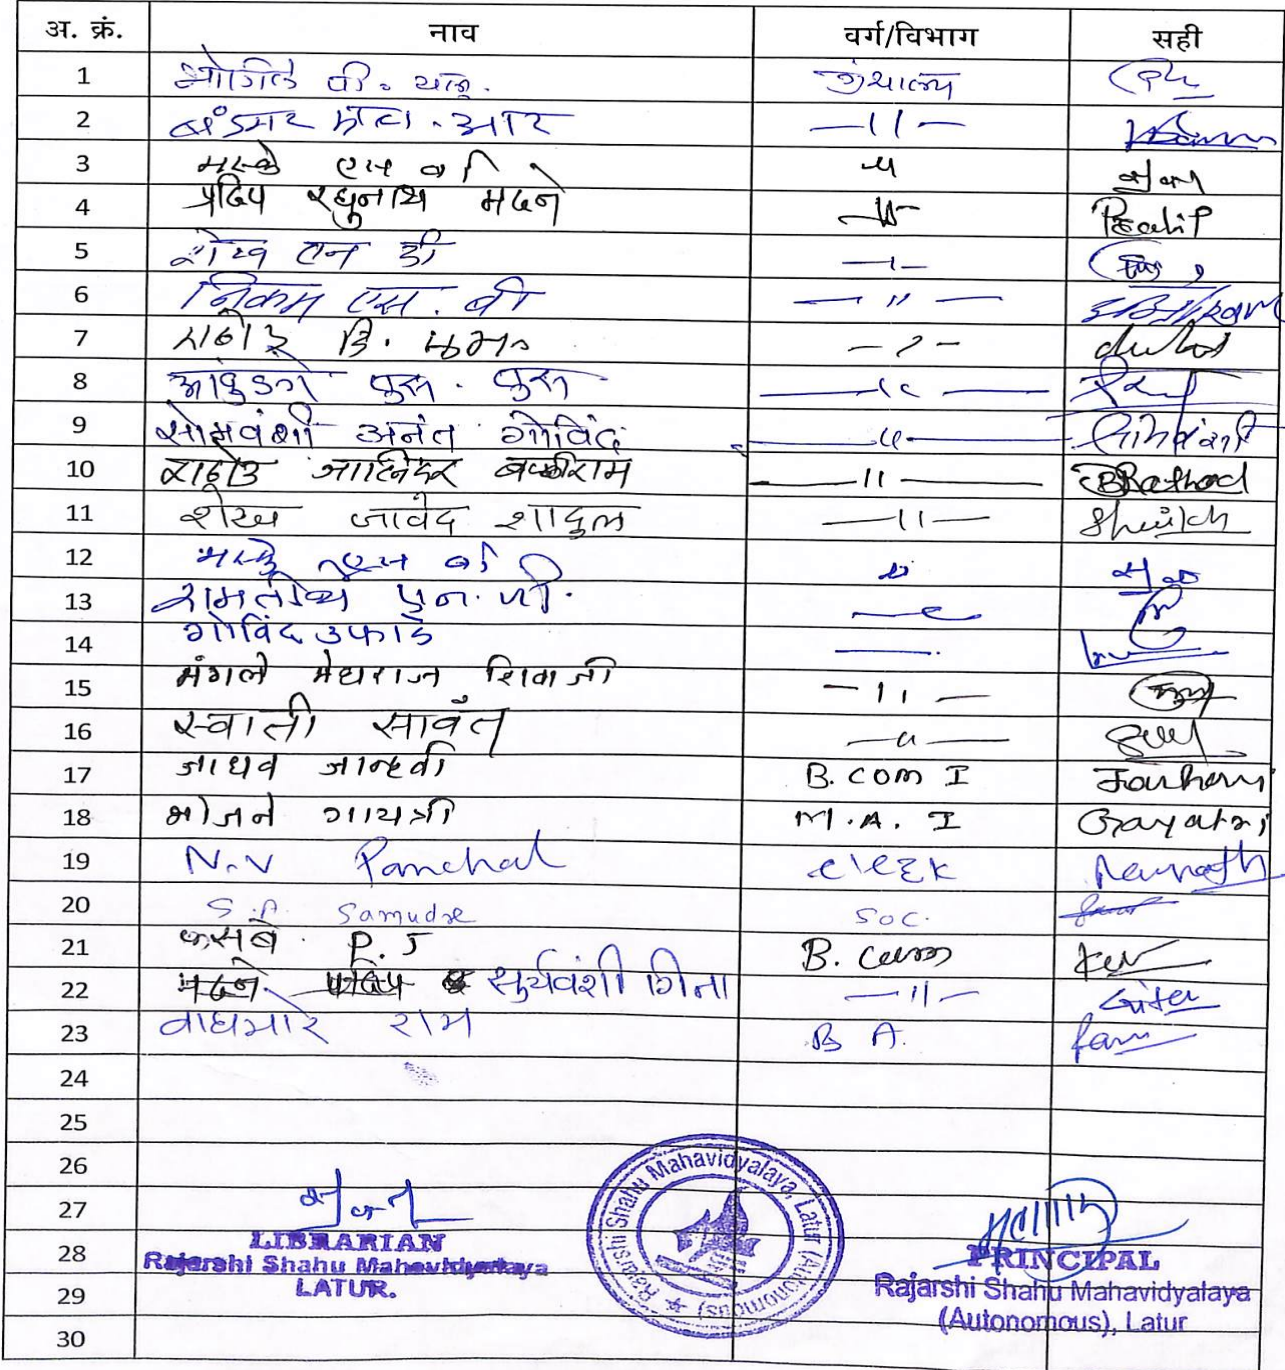 अ. क्रं. नाव वर्ग/विभाग सही
1 भोगिले व्ही. ग्रंथालय
2 आर —11—
3 मस्के एस व्ही "
4 प्रदिप रघुनाथ मदने Pradip
5 शेख एन डी —1—
6 निकम एस. बी — 11 —
7 राठोड
8
9 सोमवंशी अनंत गोविंद —11— सोमवंशी
10 राठोड जालिंदर बळीराम —11— JBRathod
11 शेख जावेद शादुल —11— Sheikh
12 मस्के एस व्ही "
13 रामतीर्थे एन. जी.
14 गोविंद उफाडे
15 मंगले मेघराज शिवाजी —11—
16 स्वाती सावंत —11—
17 जाधव जान्हवी B. COM I Janhavi
18 भोजने गायत्री M.A. I Gayatri
19 N.V Panchal clerk Navnath
20 S.P. Samudre Soc.
21 कसबे P. J B. Com
22 मदने प्रदिप सुर्यवंशी गिता —11— Gita
23 वाघमारे राम B A. Ram
24
25
26
27
28
29
30
LIBRARIAN
Rajarshi Shahu Mahavidyalaya
LATUR.
Rajarshi Shahu Mahavidyalaya, Latur (Autonomous)
PRINCIPAL
Rajarshi Shahu Mahavidyalaya
(Autonomous), Latur